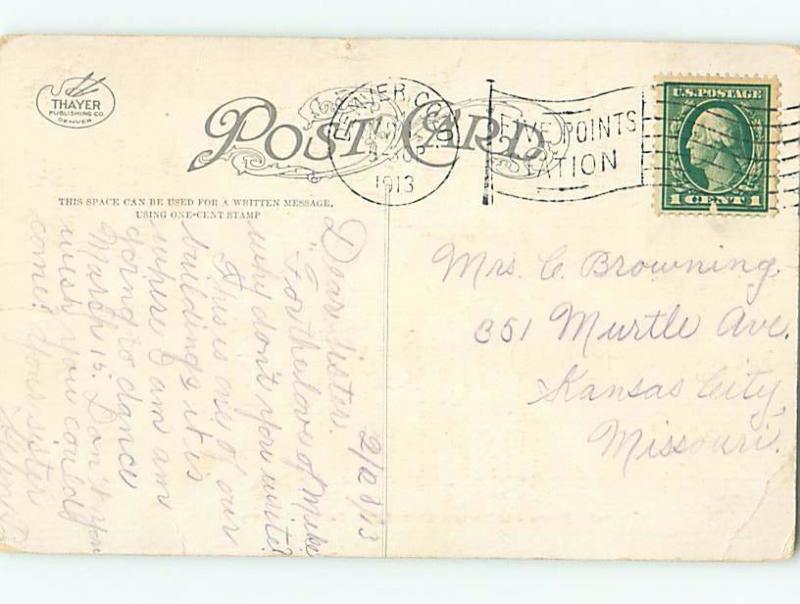 THAYER
PUBLISHING CO.
DENVER
POST CARD
DENVER, COLO.
1913
FIVE POINTS
STATION
U.S. POSTAGE
1 CENT 1
THIS SPACE CAN BE USED FOR A WRITTEN MESSAGE,
USING ONE-CENT STAMP
2/28/13
Dear sister.
"For the love of Mike
why don't you write?
This is one of our
buildings it is
where I am
going to dance
March 15. Don't you
wish you could
come? Your sister
Mrs. C. Browning
351 Murtle Ave.
Kansas City,
Missouri.